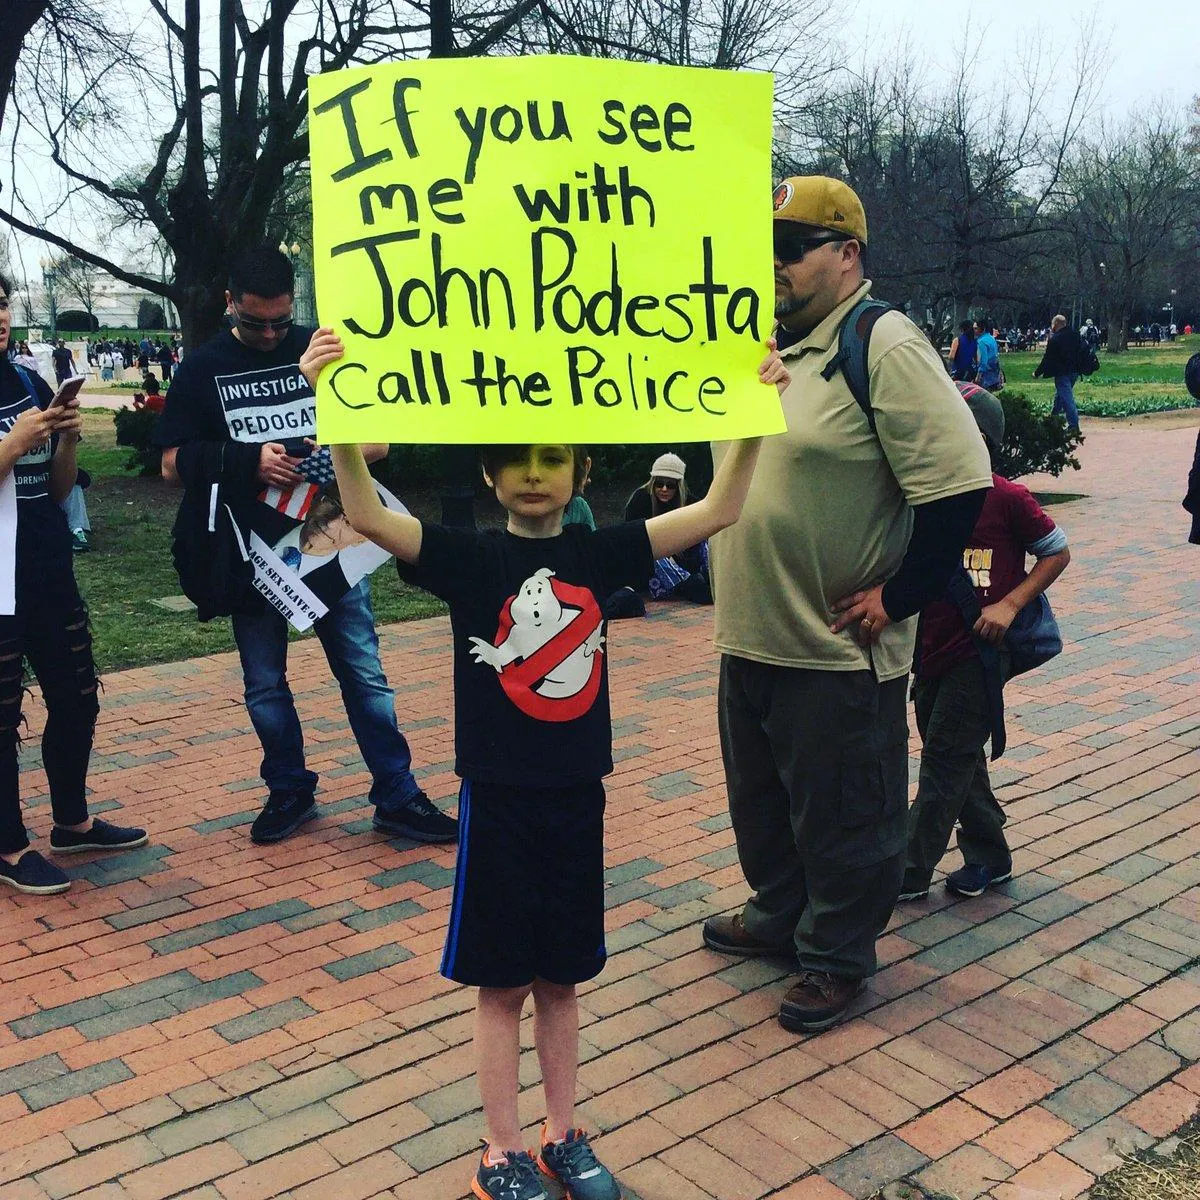 If you see
me with
John Podesta
Call the Police
INVESTIGA
PEDOGAT
AGE SEX SLAVE O
UPPERER